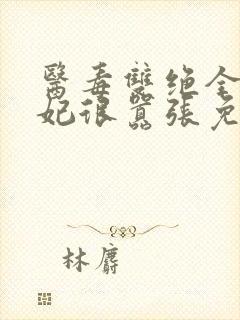 醫毒雙绝全
妃很囂張免
林麝